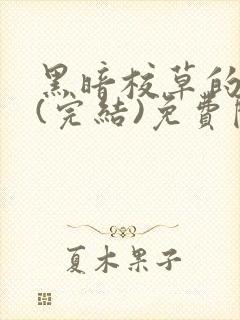 黑暗校草的
(完結)免費
夏木果子